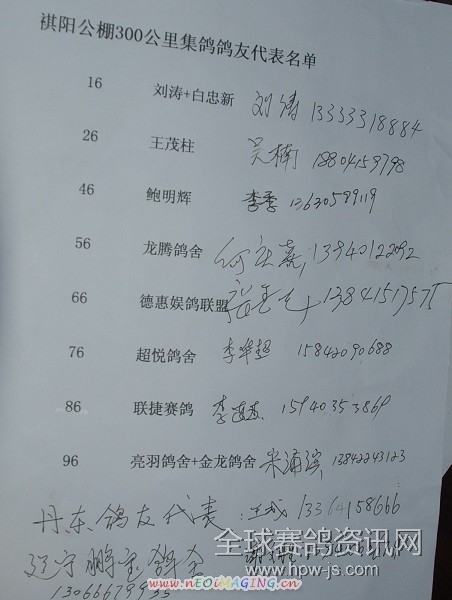 祺阳公棚300公里集鸽鸽友代表名单
16 刘涛+白忠新 刘涛 13333318884
26 王茂柱 吴楠 18804159798
46 鲍明辉 李季 13630589119
56 龙腾鸽舍 13940122092
66 德惠娱鸽联盟 13841517575
76 超悦鸽舍 李学超 15842090688
86 联捷赛鸽 15940353869
96 亮羽鸽舍+金龙鸽舍 米浦滨 13842243123
丹东鸽友代表: 13364158666
辽宁鹏宝鸽舍
全球赛鸽资讯网
www.hpw-js.com
www.nEOiMAGING.cn